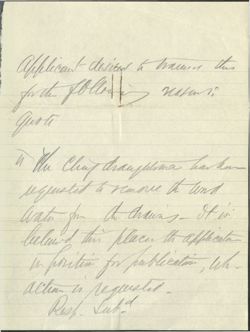 Applicant desires to traverse this
for the following reasons:
quote
"The Chief draughtsman has been
requested to remove the word
water from the drawing - It is
believed this places the application
in position for publication, wh.
action is requested -
Resp. Sub'd